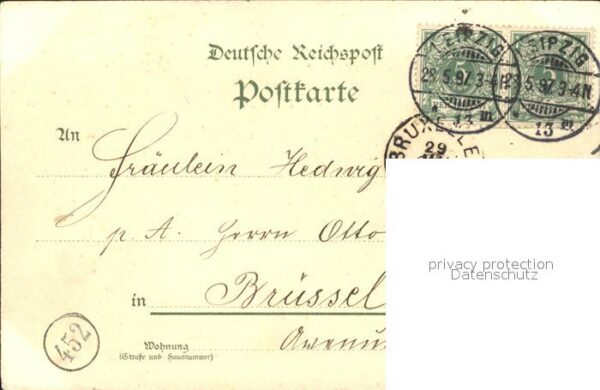 Deutsche Reichspost
Postkarte
LEIPZIG
28.5.97.3-4N
* 13 III
LEIPZIG
5.97.3-4N
* 13 III
5
BRUXELLE
29
An
Fräulein Hedwig
p. A. Herrn Otto
in Brüssel
Wohnung
(Straße und Hausnummer)
Avenu
452
privacy protection
Datenschutz